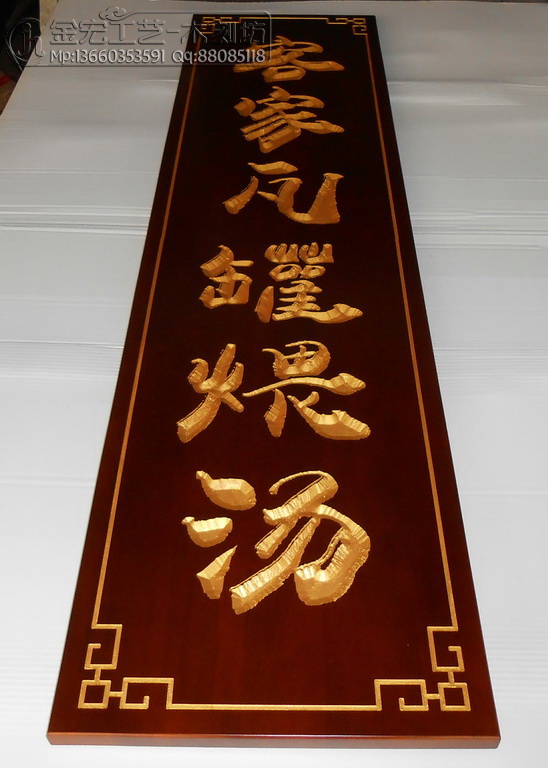 金宏工艺-木刻坊
Mp:13660353591 QQ:88085118
客家瓦罐煨汤